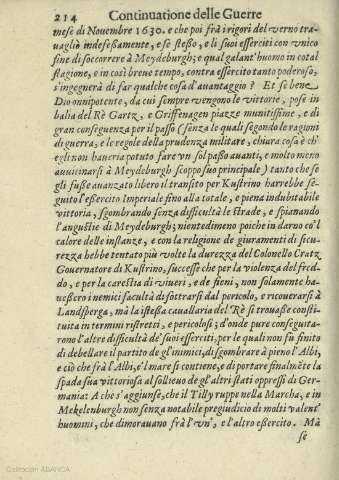 214 Continuatione delle Guerre
mese di Nouembre 1630. e che poi frà i rigori del verno tra-
uagliò indefessamente, e se stesso, e li suoi esserciti con vnico
fine di soccorrere à Meydeburgh; e qual galant'huomo in cotal
stagione, e in così breue tempo, contra essercito tanto poderoso,
s'ingegnerà di far qualche cosa d'auantaggio? Et se bene
Dio onnipotente, da cui sempre vengono le vittorie, pose in
balia del Rè Gartz, e Griffenagen piazze munitissime, e di
gran conseguenza per il passo (senza le quali segondo le ragioni
di guerra, e le regole della prudenza militare, chiara cosa è ch'
egli non haueria potuto fare vn sol passo auanti, e molto meno
auuicinarsi à Meydeburgh scoppo suo principale) tanto che se
gli fusse auanzato libero il transito per Kustrino harrebbe se-
guito l'essercito Imperiale sino alla totale, e piena indubitabile
vittoria, sgombrando senza difficultà le strade, e spianando
l'angustie di Meydeburgh; nientedimeno poiche in darno co'l
calore delle instanze, e con la religione de giuramenti di sicu-
rezza hebbe tentato più volte la durezza del Colonello Cratz
Gouernatore di Kustrino, successe che per la violenza del fred-
do, e per la carestia di viueri, e de fieni, non solamente ha-
uessero i nemici facultà di sottrarsi dal pericolo, e ricouerarsi à
Landsperga, mà la istessa cauallaria del Rè si trouasse consti-
tuita in termini ristretti, e pericolosi; d'onde pure conseguita-
rono l'altre difficultà de' suoi esserciti, per le quali non fu finito
di debellare il partito de gl'inimici, di sgombrare à pieno l'Albi,
e ciò che frà l'Albi, e'l mare si contiene, e di portare finalmete la
spada sua vittoriosa al sollieuo de gl'altri stati oppressi di Ger-
mania: A che s'aggiunse, che il Tilly ruppe nella Marcha, e in
Mekelenburgh non senza notabile pregiudicio di molti valent'
huomini, che dimorauano frà l'vn', e l'altro essercito. Mà
se
Colección ABANCA